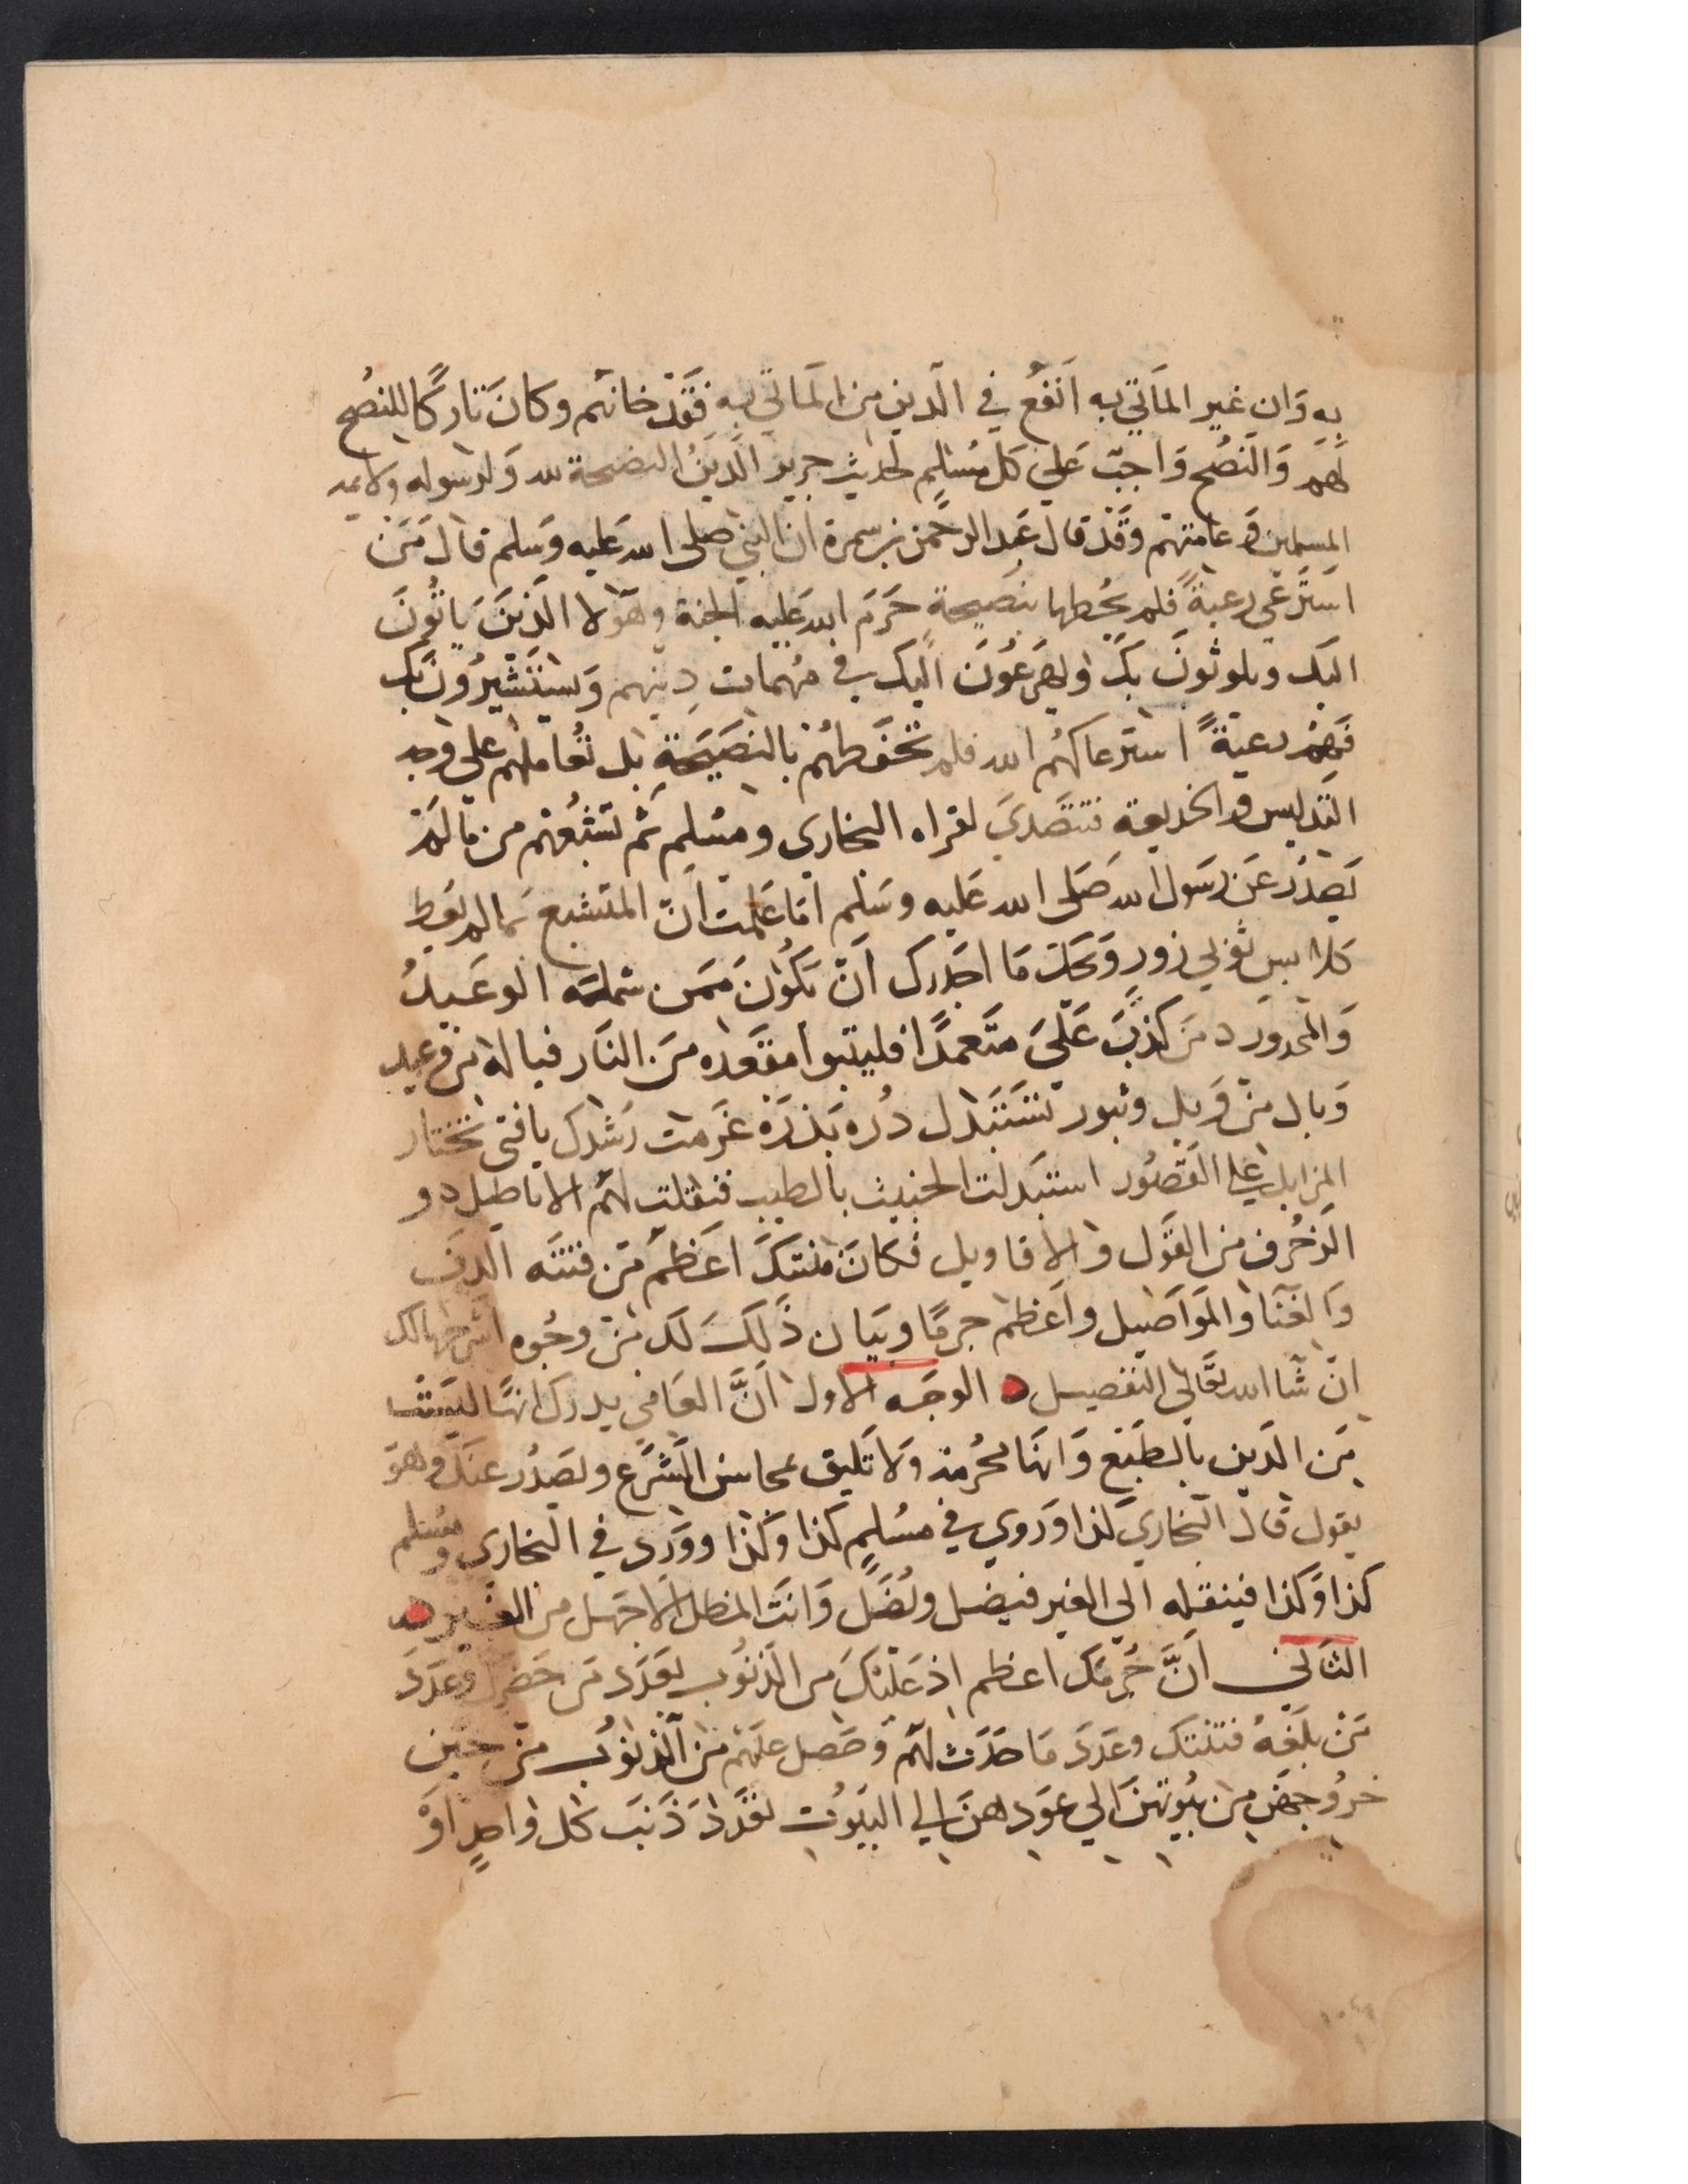 به وَان غير المَاتي به اَنفَع في الدين من المَاتي به فَقَدْ خانهم وكانَ تاركًا للنصُح
لهَم وَالنصُح وَاجبٌ عَلي كل مُسْلم لحديث جرير الّدينُ النصحة لله وَلرسوله ولايمه
المسلمين وَعامتهم وَقَدْ قال عَبد الرحمن بن سمرة ان النبي صلى الله عَليه وَسلم قال مَن
استَرعَى رعيةً فلم يحُطها بنصَيحةٍ حَرَم الله عَليه الجنة وهَولا الذينَ يَاتُونَ
اليك ويلوثونَ بكَ ويهَرعُونَ اليك في مُهمات دِينهم وَيستشيرُونَك
فَهُم رعيةً استرعاكهُم الله فلم تحفَطهُمْ بالنصَيحَةِ بل تعُاملهم على وجه
التدليس والخديعة فتتصَدي لقراه البخاري ومسُلم ثم تشبعُهم من مَا لمْ
يَصدُر عَن رسَول الله صَلى الله عَليه وسَلم امَا عَلمت انّ المتشبع بمَا لم يعُط
كلابس ثوبي زورٍ وَيحكَ مَا اجَدرك اَنْ تكُونَ ممَن شملته الوعَيدُ
وَالمحدورد مَن كذبَ عَلَيَ متَعمدًا فليتبوا مقعَده مَن النَار فيا له من وعيد
وَيال من وَيل وثبور تستَبدل دُره بَذرَة عَدمت رَشدك يا فتى تختار
المزابل علي القصُور استبَدلت الخبيث بالطيب فنقلت لهُم الاباطيل دو
الزخُرف من القَول والاقاويل فكانَ فتنتكَ اعَظم مَن فتنَه الدَف
وَالغنَا والمَواصَيل واعَظم جرمًا وبيَان ذَلكَ لك مَنْ وجُوه اشرحها لك
انْ شَا الله تعَالى التفصيل الوجَه الاول اَنَّ العَامي يدرك انهَا ليسَت
مَن الدَين بالطبَع وَانهَا محُرمة وَلا تَليق بمحاسن الشرَع وتصَدُر عنكَ وهوَ
يقول قال البخاري كذا وَروي في مسُلم كذا وَكذا ووَرد في البخاري ومسُلم
كذا وَكذا فينقله الي الغير فيضل ويُضَل وَانتَ المضل الاجهَل من الغير
الثاني اَنَّ جُرمَك اعظم اذ عَليْكَ من الذنُوب بعَدَد مَن حَضرك وعَدَدَ
مَنْ بلَغهُ فتنتك وعَدَدَ مَا حَدَث لهَم وَحَصل عليهَم منَ الذنوُب منْ حين
خرُوجهَن من بيُوتهنَ الي عوَدهنَ الي البيُوت لقَدَ ذَنبَ كل واحدٍ اوْ